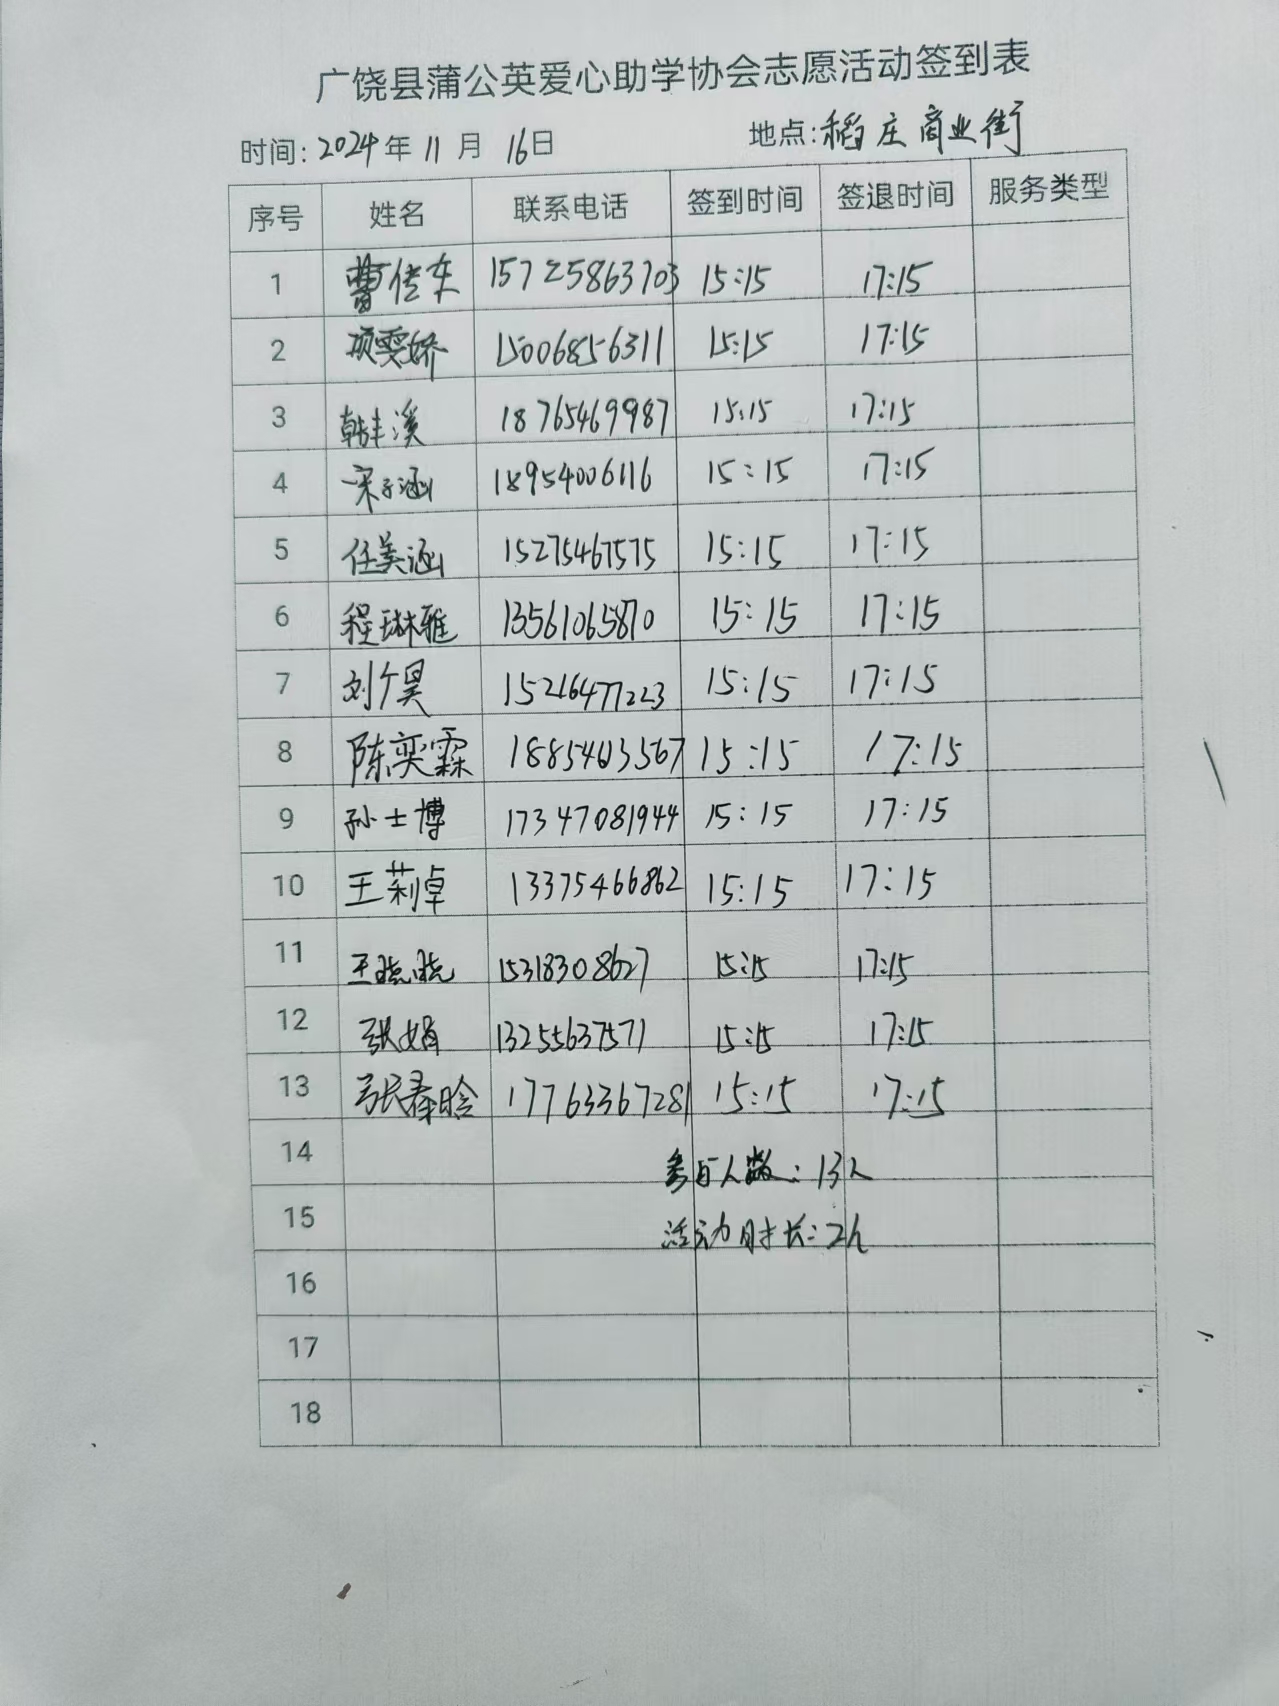 广饶县蒲公英爱心助学协会志愿活动签到表
时间: 2024 年 11 月 16 日 地点: 稻庄商业街
序号 姓名 联系电话 签到时间 签退时间 服务类型
1 曹传东 15725863703 15:15 17:15
2 项雯娇 15006856311 15:15 17:15
3 韩丰溪 18765469987 15:15 17:15
4 宋子涵 18954006116 15:15 17:15
5 任美涵 15275467575 15:15 17:15
6 程琳雅 13561065870 15:15 17:15
7 15216477223 15:15 17:15
8 陈奕霖 15:15 17:15
9 孙士博 17347081944 15:15 17:15
10 王莉卓 13375466862 15:15 17:15
11 王晓晓 15318308627 15:15 17:15
12 张娟 13255637571 15:15 17:15
13 17763367281 15:15 17:15
14 参与人数: 13人
15 活动时长: 2h
16
17
18